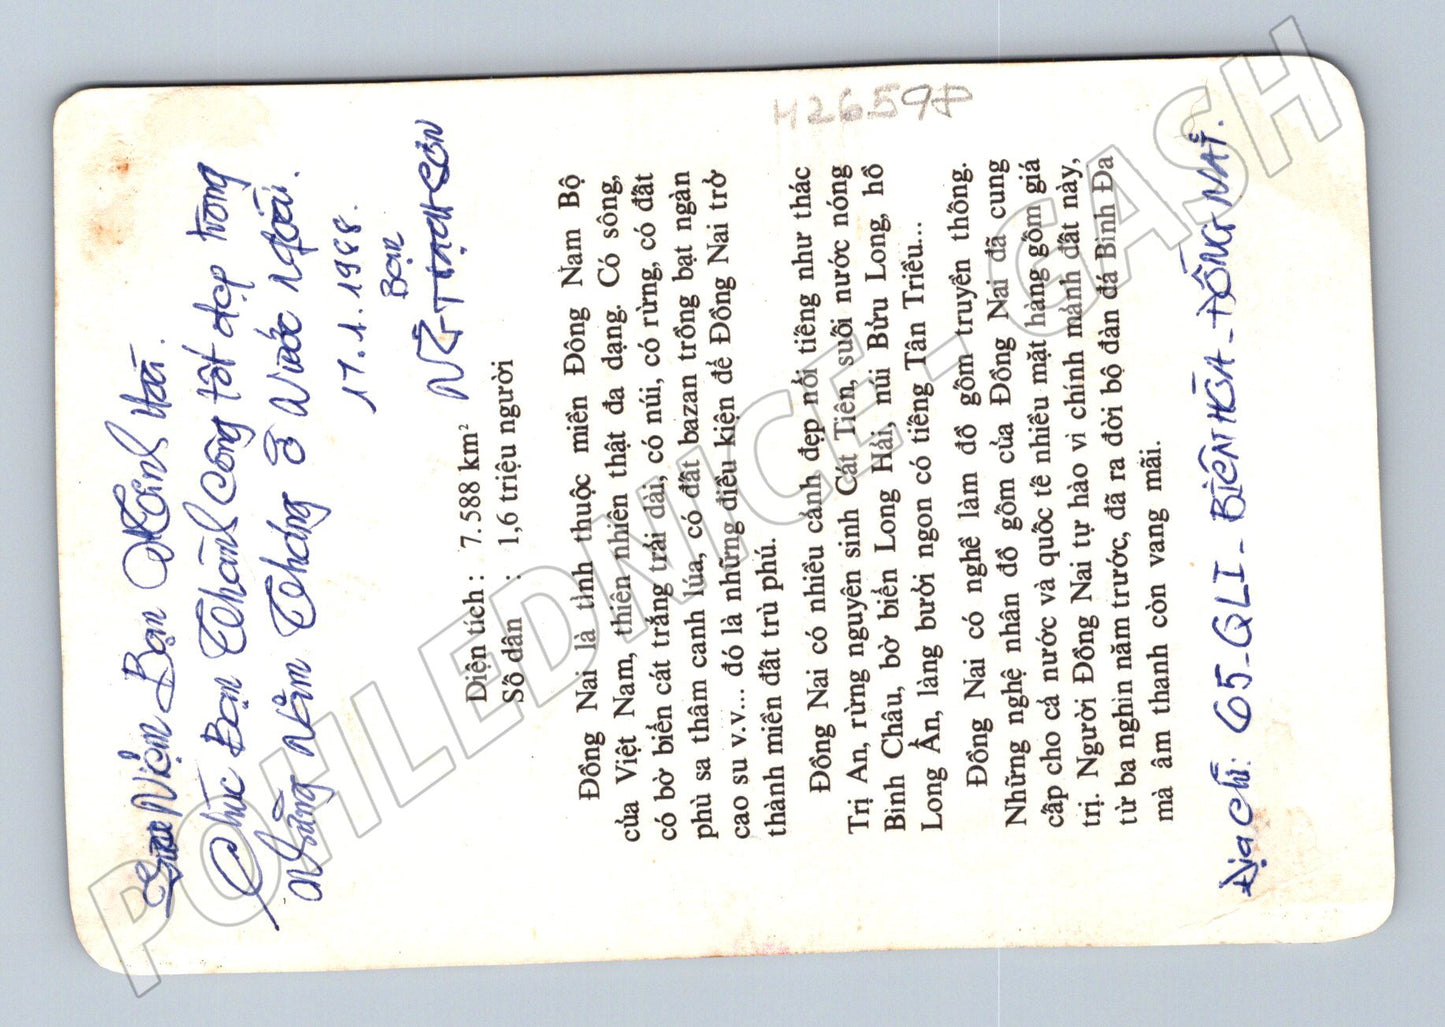 Niệm Bạn Thanh Hải.
Chúc Bạn Thành công tốt đẹp trong
những năm tháng ở nước ngoài.
17.1.1988.
Bạn
THẠCH SƠN
Diện tích : 7.588 km²
Số dân : 1,6 triệu người
Đồng Nai là tỉnh thuộc miền Đông Nam Bộ
của Việt Nam, thiên nhiên thật đa dạng. Có sông,
có bờ biển cát trắng trải dài, có núi, có rừng, có đất
phù sa thâm canh lúa, có đất bazan trồng bạt ngàn
cao su v.v... đó là những điều kiện để Đồng Nai trở
thành miền đất trù phú.
Đồng Nai có nhiều cảnh đẹp nổi tiếng như thác
Trị An, rừng nguyên sinh Cát Tiên, suối nước nóng
Bình Châu, bờ biển Long Hải, núi Bửu Long, hồ
Long Ẩn, làng bưởi ngon có tiếng Tân Triều...
Đồng Nai có nghề làm đồ gốm truyền thống.
Những nghệ nhân đồ gốm của Đồng Nai đã cung
cấp cho cả nước và quốc tế nhiều mặt hàng gốm giá
trị. Người Đồng Nai tự hào vì chính mảnh đất này,
từ ba nghìn năm trước, đã ra đời bộ đàn đá Bình Đa
mà âm thanh còn vang mãi.
Địa chỉ: 65-QLI - BIÊN HÒA - ĐỒNG NAI.
H26598
POHLEDNICE - GASH